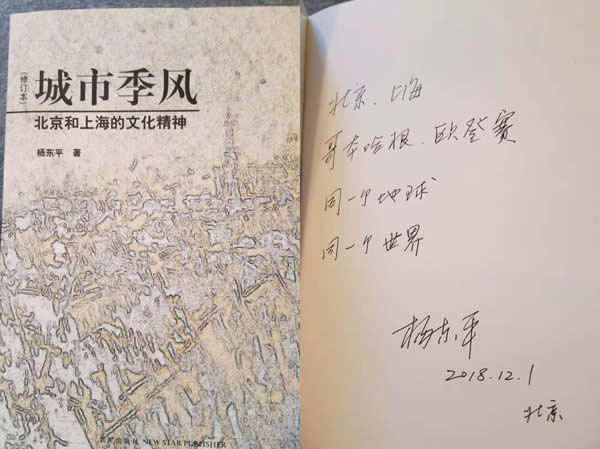 (修订本)
城市季风
北京和上海的文化精神
杨东平 著
新星出版社 NEW STAR PUBLISHER
北京、上海
哥本哈根、欧登赛
同一个地球
同一个世界
杨东平
2018.12.1
北京